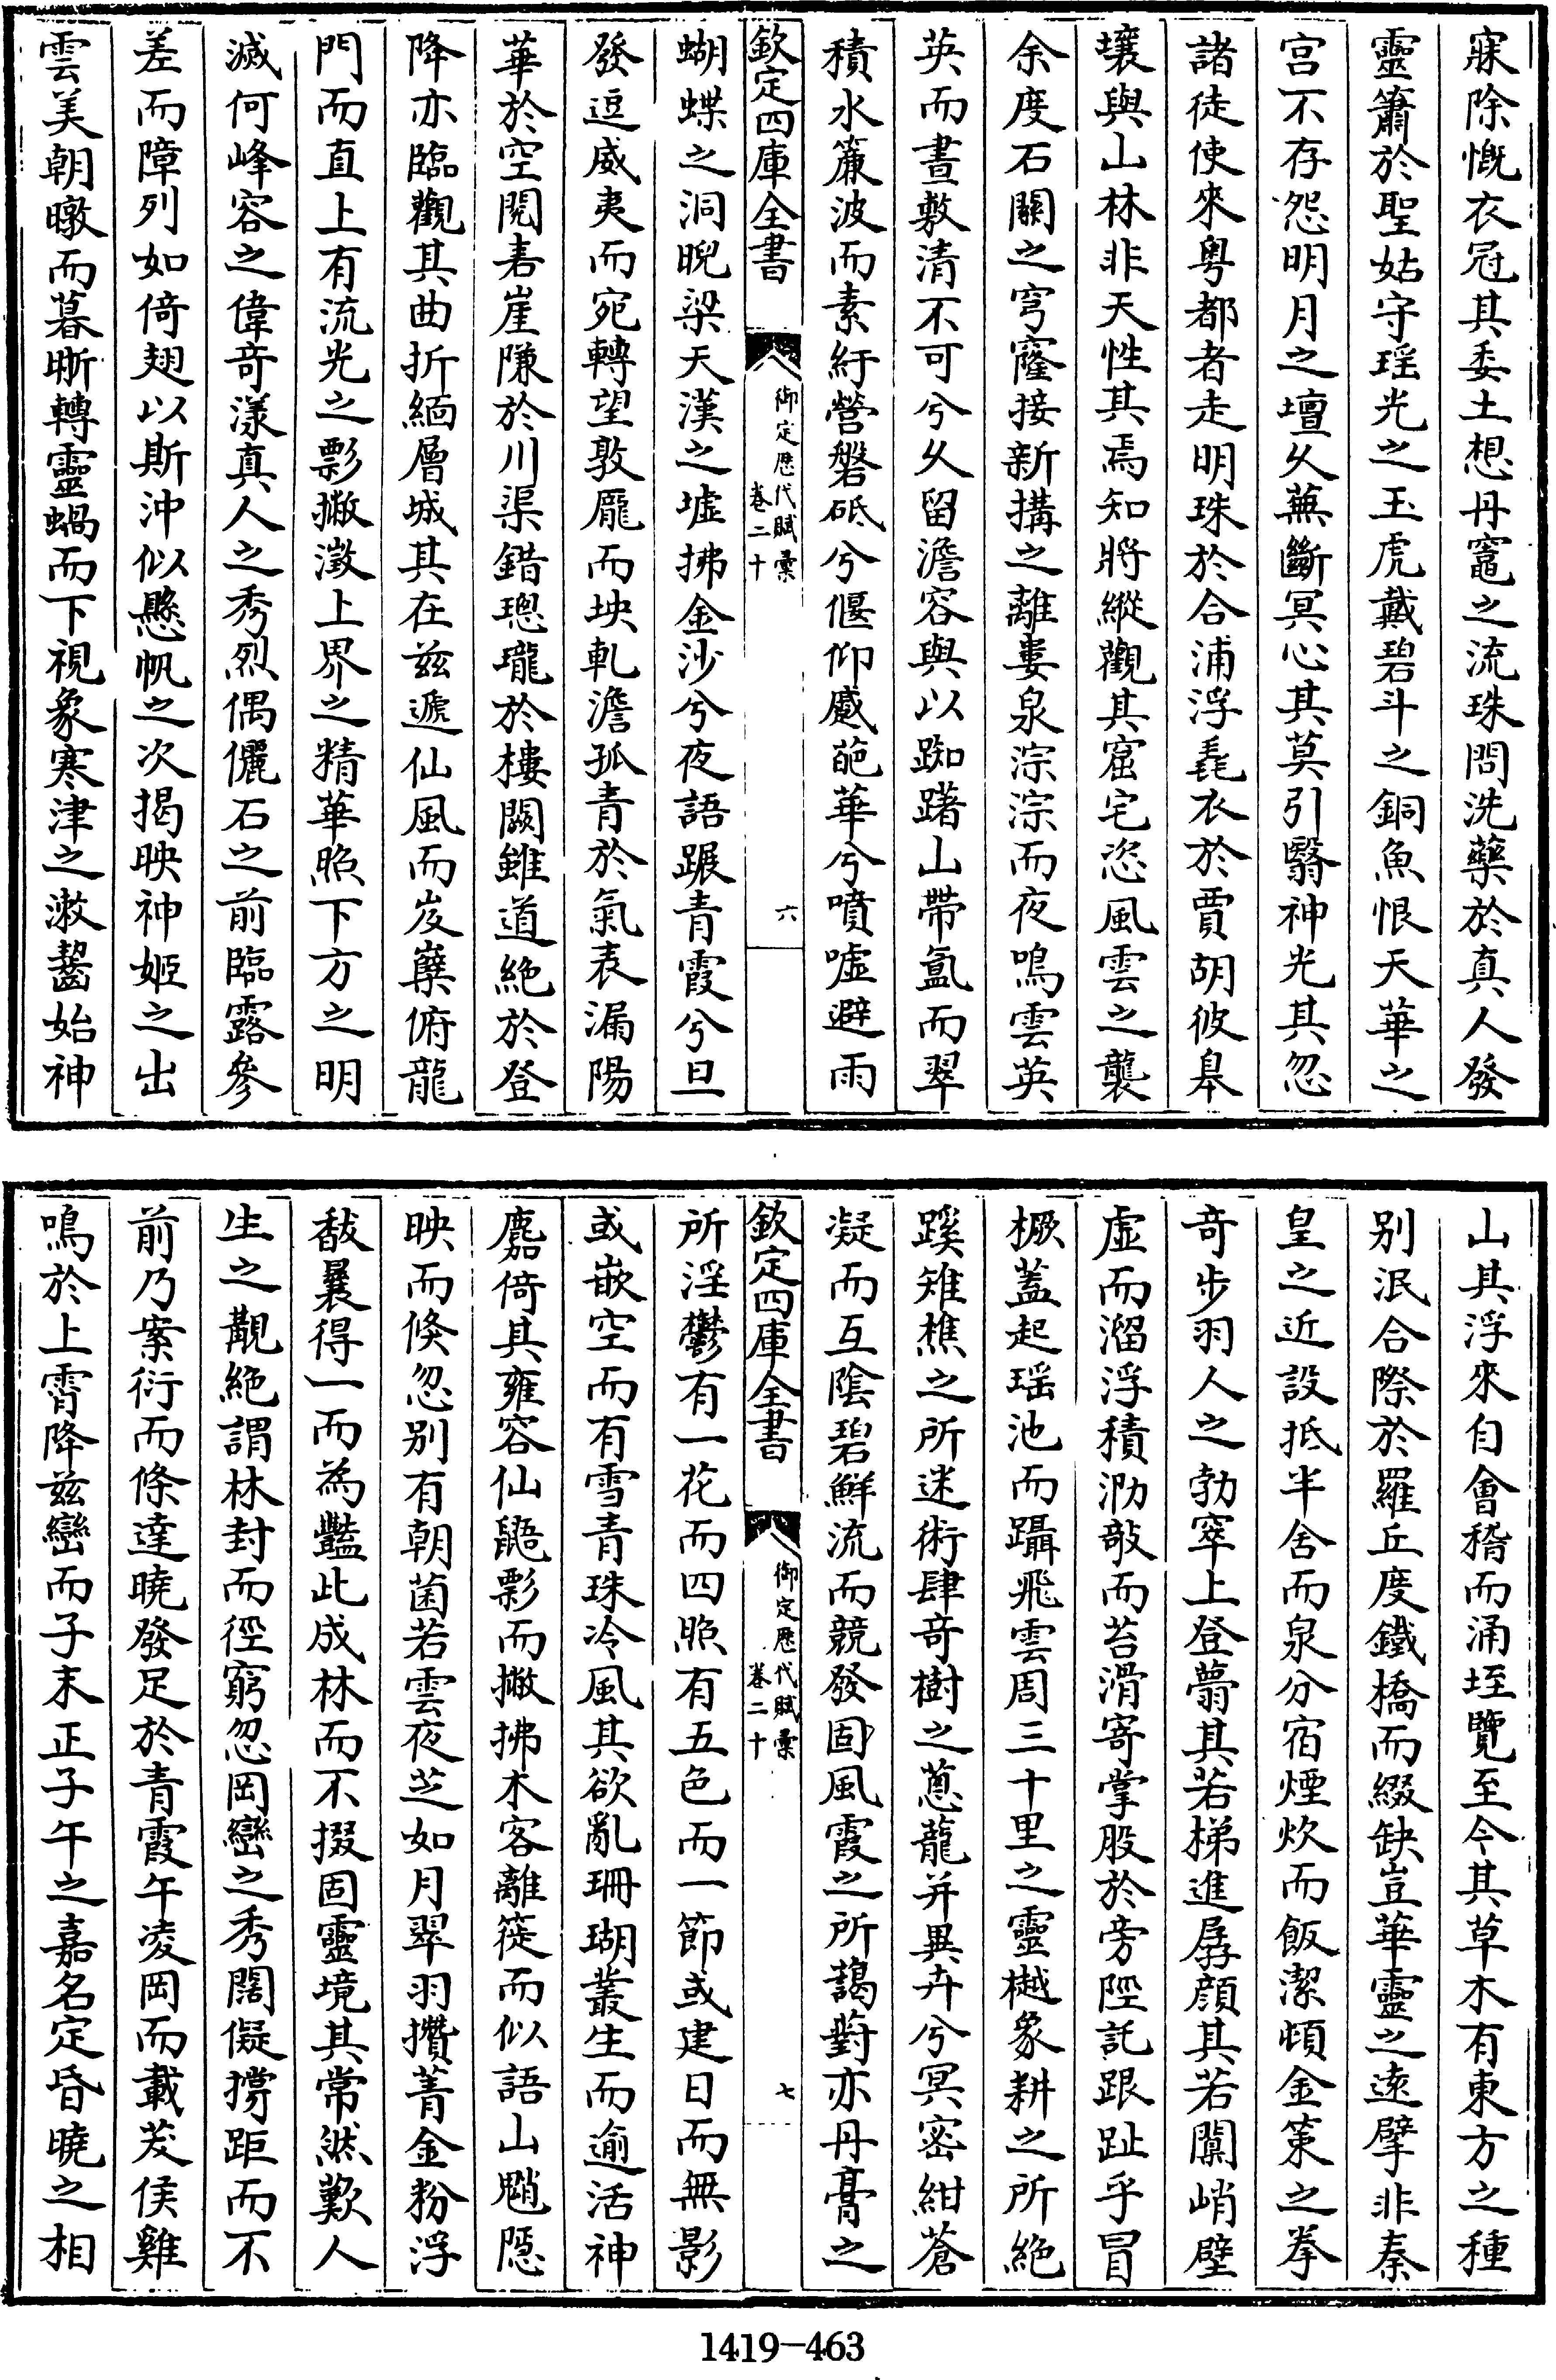 寐除慨衣冠其委土想丹竈之流珠問洗藥於真人發
靈簫於聖姑守瑶光之玉虎戴碧斗之銅魚恨天華之
宫不存怨明月之壇久蕪斷冥心其莫引翳神光其忽
諸徒使來粤都者走明珠於合浦浮毳衣於賈胡彼臯
壤與山林非天性其焉知將縱觀其窟宅恣風雲之襲
余度石關之穹窿接新搆之離婁泉淙淙而夜鳴雲英
英而晝敷清不可兮久留澹容與以踟躇山帶氲而翠
積水簾波而素紆營磐砥兮偃仰蹙葩華兮噴嘘避雨
欽定四庫全書
御定歴代賦彙
卷二十
六
蝴蝶之洞睨梁天漢之墟拂金沙兮夜語蹍青霞兮旦
發逗威夷而宛轉望敦龎而坱軋澹孤青於氣表漏陽
華於空閱砉崖隒於川渠錯璁瓏於樓闕雖道絶於登
降亦臨觀其曲折緬層城其在兹遞仙風而岌嶪俯龍
門而直上有流光之影撇澂上界之精華照下方之明
滅何峰容之偉奇漾真人之秀烈偶儷石之前臨露參
差而障列如倚翅以斯沖似懸帆之次揭映神姬之出
雲美朝暾而暮晰轉靈蝸而下視象寒津之漱齧始神
山其浮來自會稽而涌垤覽至今其草木有東方之種
别泯合際於羅丘度鐵橋而綴缺豈華靈之遠擘非秦
皇之近設抵半舍而泉分宿煙炊而飯潔頓金策之拳
奇步羽人之勃窣上登蕚其若梯進孱顔其若闑峭壁
虚而溜浮積泐敧而苔滑寄掌股於旁陘託跟趾乎冒
橛蓋起瑶池而躡飛雲周三十里之靈樾象耕之所絶
蹊雉樵之所迷術肆奇樹之蔥蘢并異卉兮冥密紺蒼
凝而互陰碧鮮流而競發固風霞之所藹蔚亦丹膏之
欽定四庫全書
御定歴代賦彙
卷二十
七
所淫鬱有一花而四照有五色而一節或建日而無影
或嵌空而有雪青珠冷風其欲亂珊瑚叢生而逾活神
麏倚其雍容仙鼯影而撇拂木客離褷而似語山魈隱
映而倏忽别有朝菌若雲夜芝如月翠羽攢菁金粉浮
馛曩得一而為豔此成林而不掇固靈境其常然歎人
生之覯絶謂林封而徑窮忽岡巒之秀闊儗撐距而不
前乃案衍而條達曉發足於青霞午凌岡而載茇俟雞
鳴於上霄降兹巒而子末正子午之嘉名定昏曉之相
1419-463